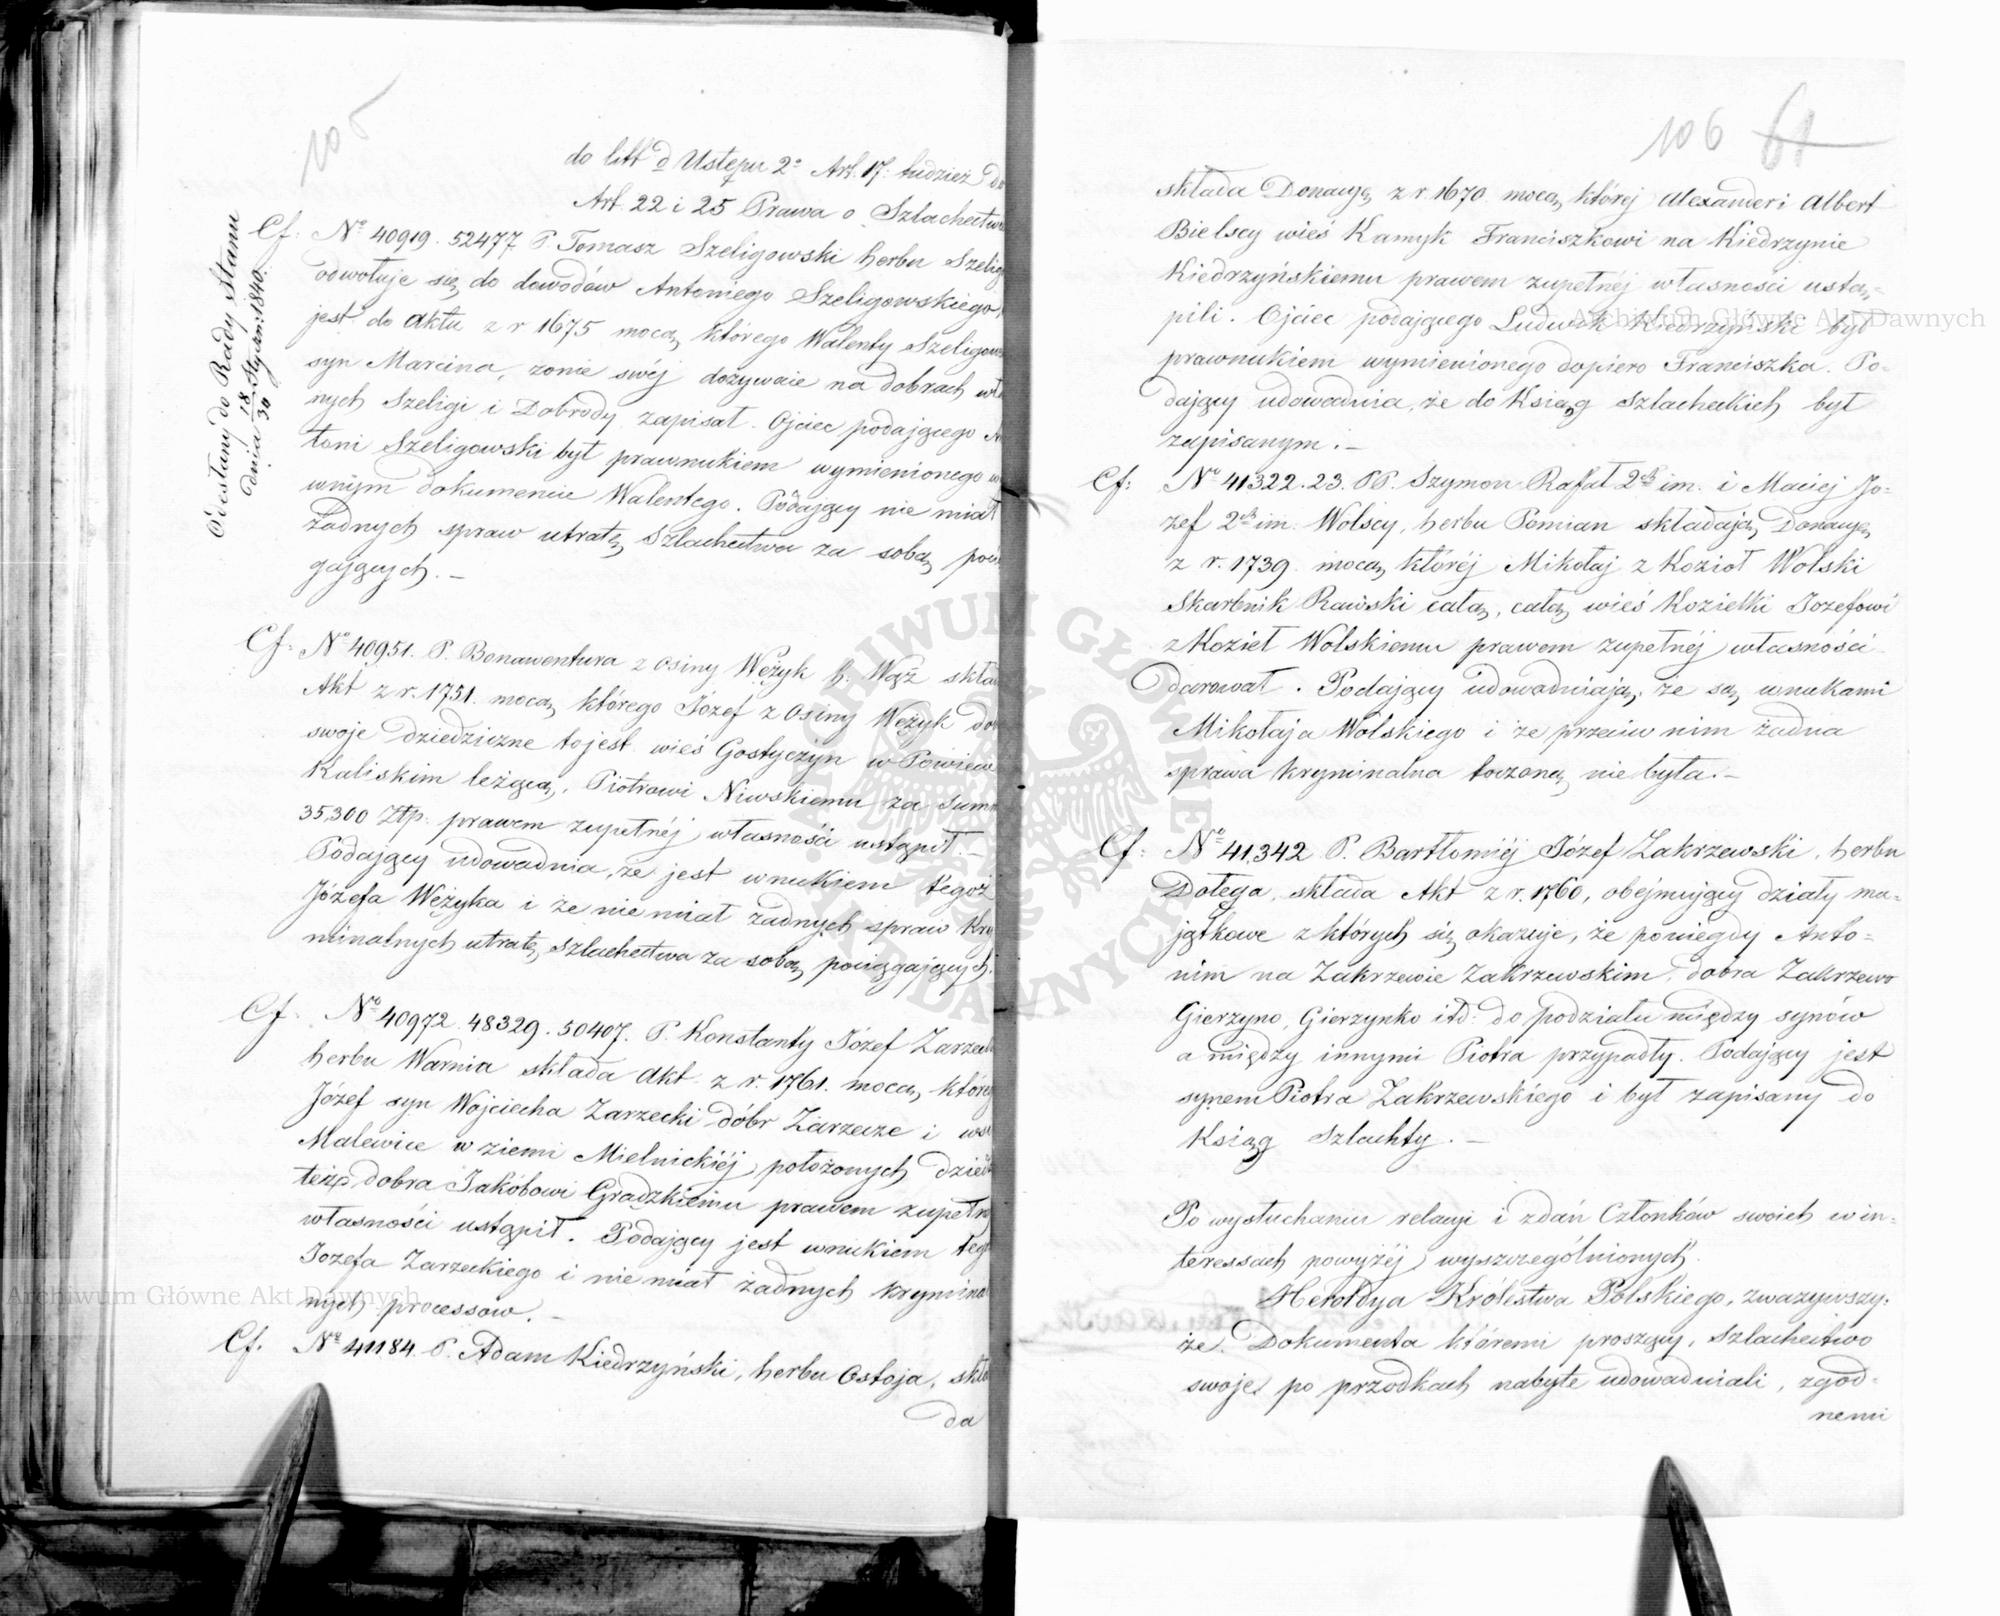 105
do litt d Ustępu 2º Art. 17. tudzież do
Art. 22 i 25 Prawa o Szlachectwie
Odesłany do Rady Stanu
dnia 18/30 Stycznia 1840.
Cf: Nº 40919. 52477 P. Tomasz Szeligowski herbu Szelig
odwołuje się do dowodów Antoniego Szeligowskiego,
jest do Aktu z r 1675 mocą którego Walenty Szeligow
syn Marcina, żonie swéj dożywaie na dobrach wła
nych Szeligi i Dobrody zapisał. Ojciec podającego An
toni Szeligowski był prawnukiem wymienionego w
wnijm dokumencie Walentego. Podający nie miał
żadnych spraw utratę Szlachectwa za sobą pocią
gających. –
Cf: Nº 40951. P. Bonawentura z Osiny Wężyk h: Wąż skła
Akt z r. 1751. mocą którego Józef z Osiny Wężyk do
swoje dziedziczne to jest wieś Gostyczyn w Powiecie
Kaliskim leżącą, Piotrowi Niwskiemu za Summ
35,300 Złp: prawem zupełnéj własności ustąpił. –
Podający udowadnia, że jest wnukiem tegoż
Józefa Wężyka i że nie miał żadnych spraw Kry
minalnych utratę szlachectwa za sobą pociągających.
Cf. Nº 40972. 48329. 50407. P. Konstanty Józef Zarzeck
herbu Warnia składa Akt z r. 1761. mocą któreg
Józef syn Wojciecha Zarzecki dóbr Zarzecze i wsi
Malewice w ziemi Mielnickiéj położonych dzied
też dobra Jakóbowi Grądzkiemu prawem zupełn
własności ustąpił. Podający jest wnukiem tego
Jozefa Zarzeckiego i nie miał żadnych krymina
nych processow. –
Cf. Nº 41184. P. Adam Kiedrzyński, herbu Ostoja, skła
da
106 61
składa Donacyą z r. 1670. mocą któréj Alexander i Albert
Bielscy wieś Kamyk Franciszkowi na Kiedrzynie
Kiedrzyńskiemu prawem zupełnéj własności ustą=
pili. Ojciec podającego Ludwik Kiedrzyński był
prawnukiem wymienionego dopiero Franciszka. Po=
dający udowadnia, że do Ksiąg szlacheckich był
zapisanym. –
Cf: Nº 41322. 23. PP. Szymon Rafał 2ch im. i Maciej Jo=
zef 2ch im. Wolscy, herbu Pomian składają Donacyą
z r. 1739. mocą któréj Mikołaj z Kozioł Wolski
Skarbnik Rawski całą, całą wieś Koziełki Jozefowi
z Kozieł Wolskiemu prawem zupełnéj własności
darował. Podający udowadniają, że są wnukami
Mikołaja Wolskiego i że przeciw nim żadna
sprawa kryminalna toczoną nie była. –
Cf: Nº 41,342 P. Bartłomiéj Józef Zakrzewski, herbu
Dołęga, składa Akt z r. 1760, obejmujący działy ma=
jątkowe z których się okazuje, że poniegdy Anto=
nim na Zakrzewie Zakrzewskim, dobra Zakrzewo
Gierzyno, Gierzynko itd: do podziału między synów
a między innymi Piotra przypadły. Podający jest
synem Piotra Zakrzewskiego i był zapisany do
Ksiąg Szlachty. –
Po wysłuchaniu relacyi i zdań Członków swoich w in=
teressach powyżéj wyszczególnionych.
Heroldya Królestwa Polskiego, zważywszy:
że Dokumenta któremi proszący, szlachectwo
swoje po przodkach nabyte udowadniali, zgod=
nemi
Archiwum Główne Akt Dawnych
Archiwum Główne Akt Dawnych
ARCHIWUM GŁÓWNE AKT DAWNYCH